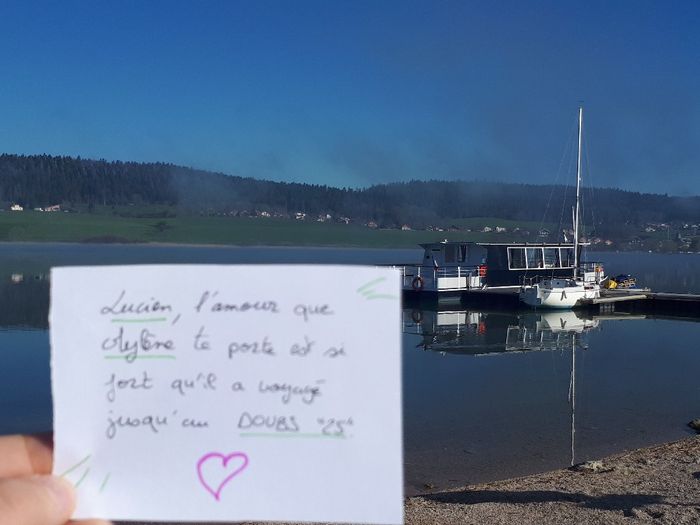 Lucien, l'amour que
Mylène te porte est si
fort qu'il a voyagé
jusqu'au DOUBS "25".